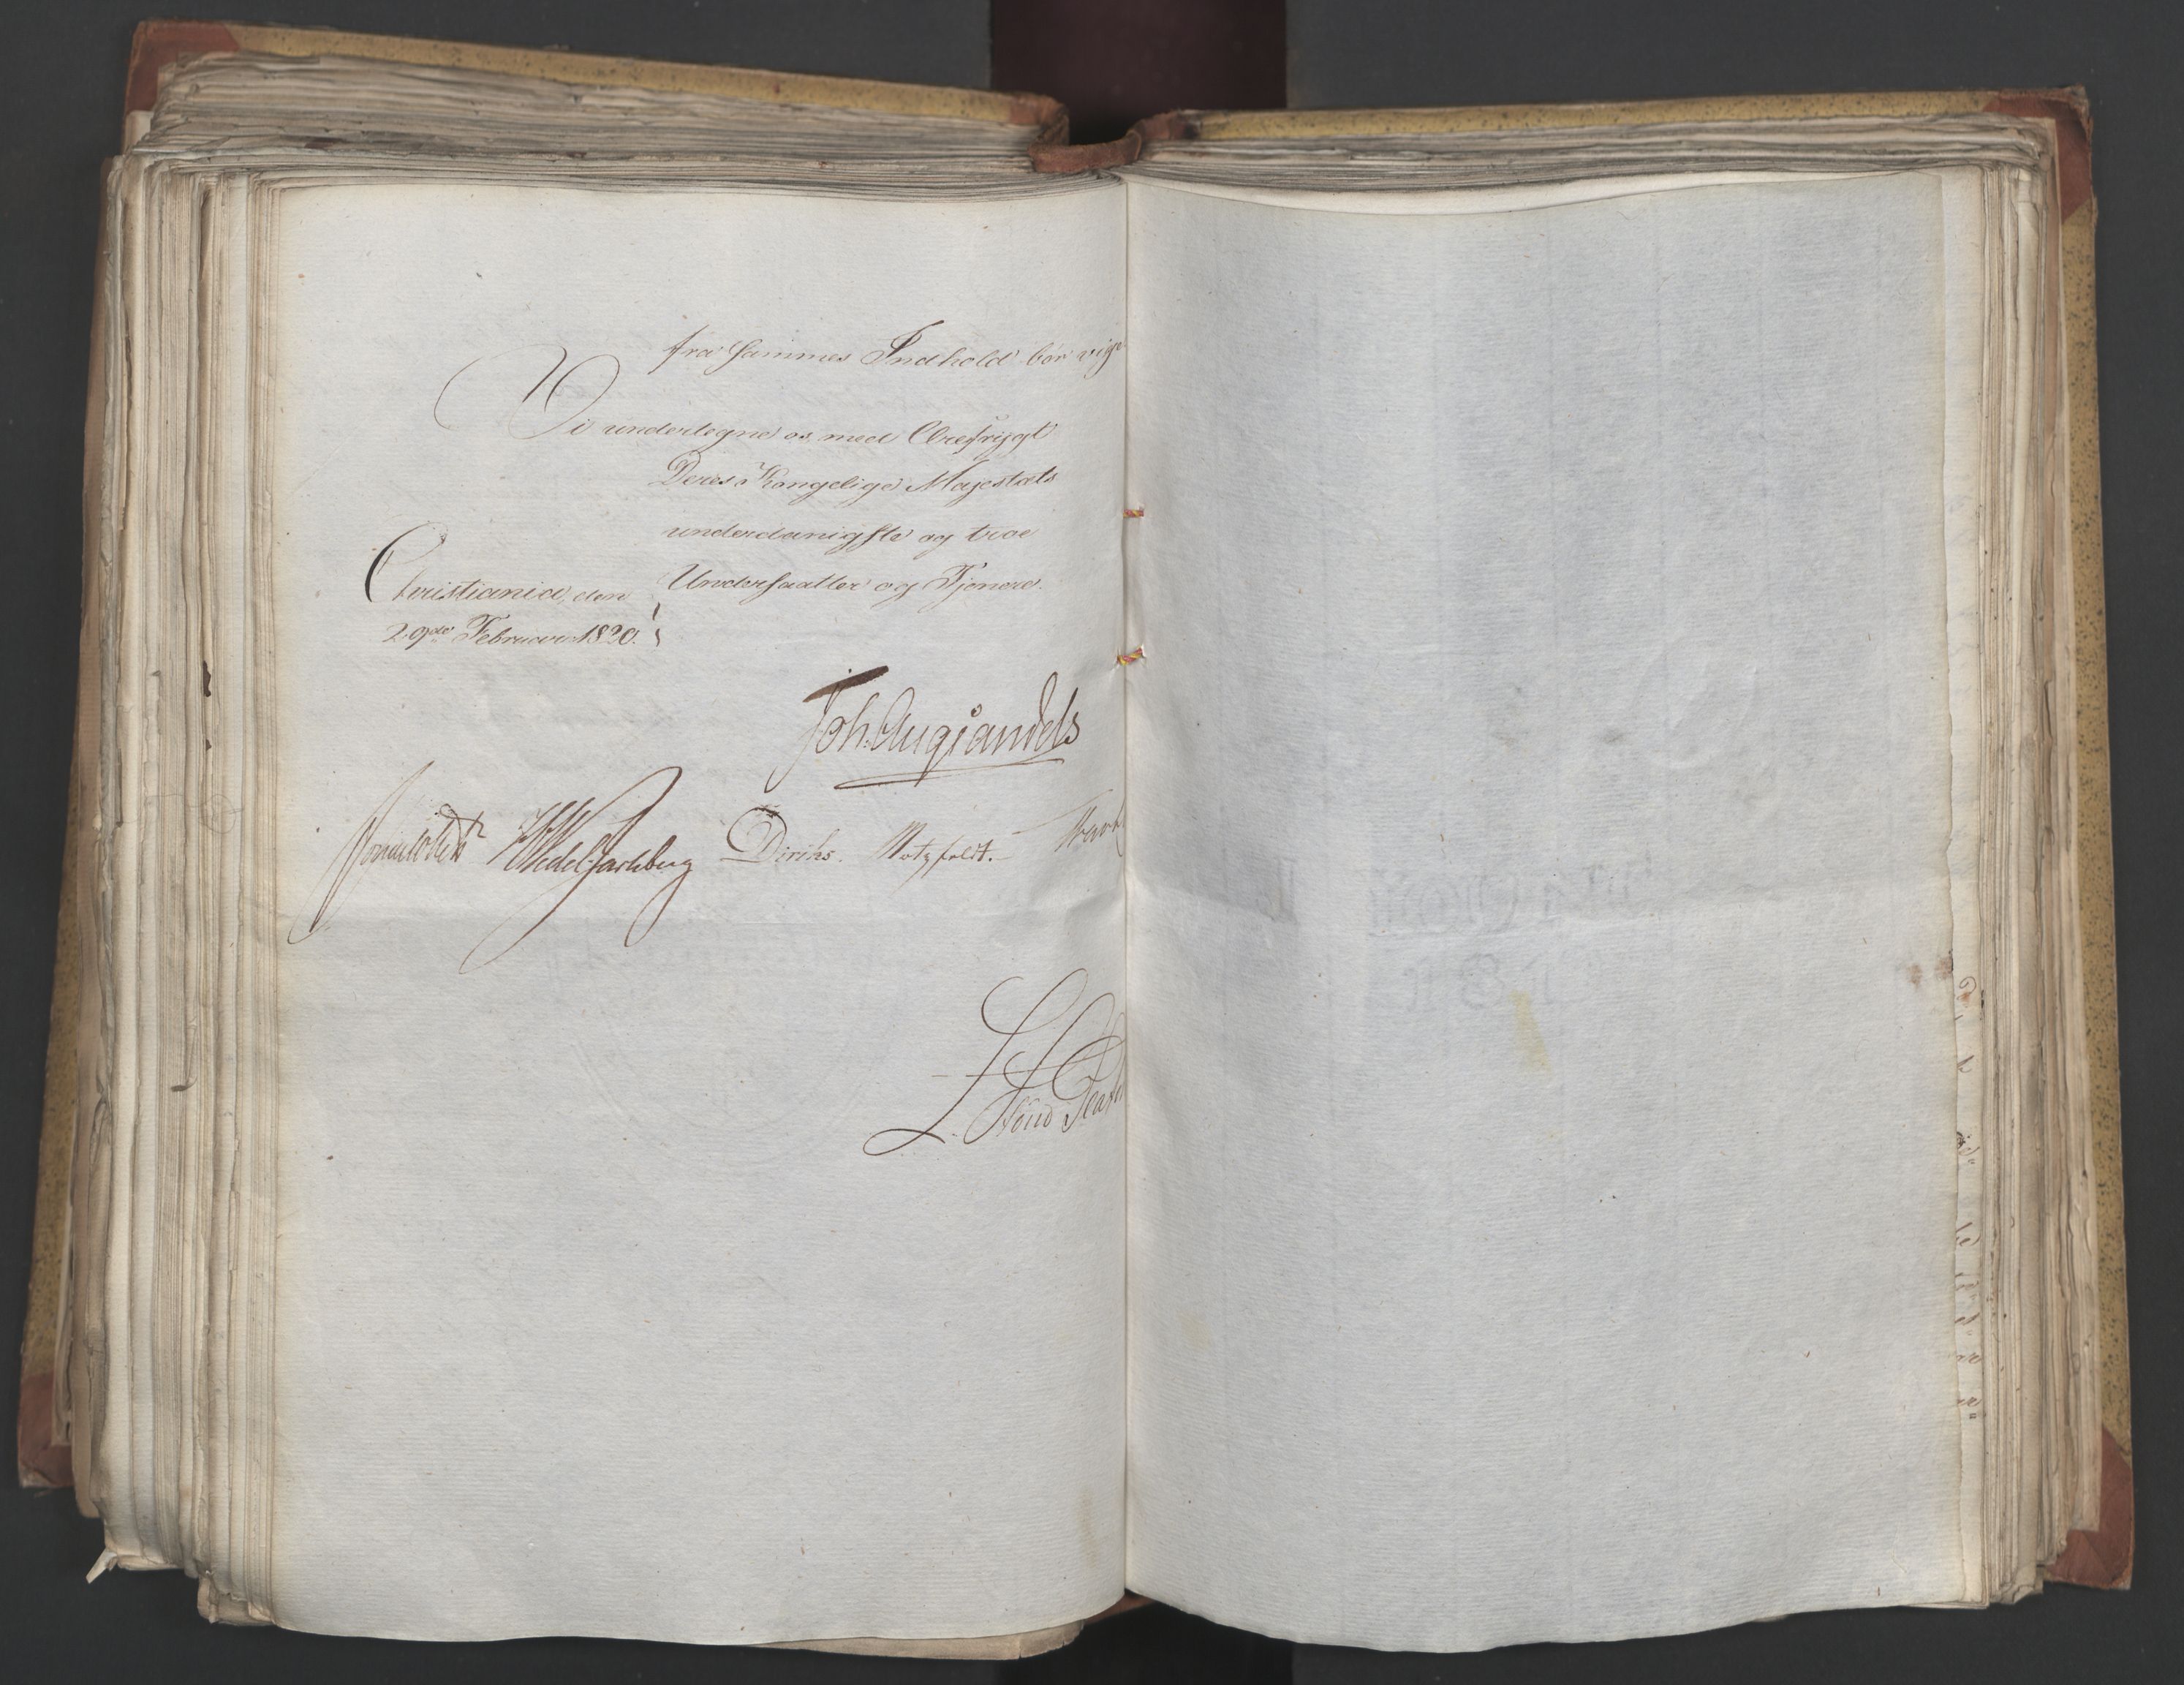 fra sammes Indhold bør vige
Vi undertegne os med Ærefrygt
Deres Kongelige Majestæts
underdanigste og troe
Undersaatter og Tjenere.
Christiania, den
29de Februar 1820.
Joh: Aug: Sandels
Sommerhielm HWedel Jarlsberg Diriks. Motzfeldt.